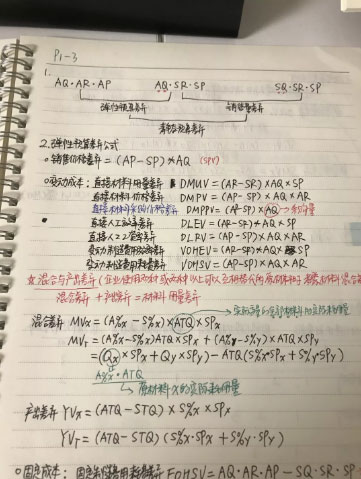 P1-3
1.
AQ·AR·AP AQ·SR·SP SQ·SR·SP
弹性预算差异 销售量差异
静态预算差异
2.弹性预算差异公式
销售价格差异 = (AP-SP)×AQ (SPV)
变动成本: 直接材料用量差异 DMUV = (AR-SR)×AQ×SP
直接材料价格差异 DMPV = (AP-SP)×AQ×AR
直接材料采购价格差异 DMPPV = (AP-SP)×AQ→采购量
直接人工效率差异 DLEV = (AR-SR)×AQ×SP
直接人工工资率差异 DLRV = (AP-SP)×AQ×AR
变动制造费用效率差异 VOHEV = (AR-SR)×AQ×SP
变动制造费用耗费差异 VOHSV = (AP-SP)×AQ×AR
☆混合与产出差异
混合差异 + 产出差异 = 材料用量差异
混合差异 MVx = (A%x - S%x)×ATQ×SPx
MVT = (A%x-S%x)ATQ×SPx + (A%y-S%y)×ATQ×SPy
= (Qx×SPx + Qy×SPy) - ATQ(S%x·SPx + S%y·SPy)
A%x·ATQ
原材料X的实际耗用量
产出差异 YVx = (ATQ-STQ) × S%x × SPx
YVT = (ATQ-STQ)(S%x·SPx + S%y·SPy)
固定成本: FOHSV = AQ·AR·AP - SQ·SR·SP